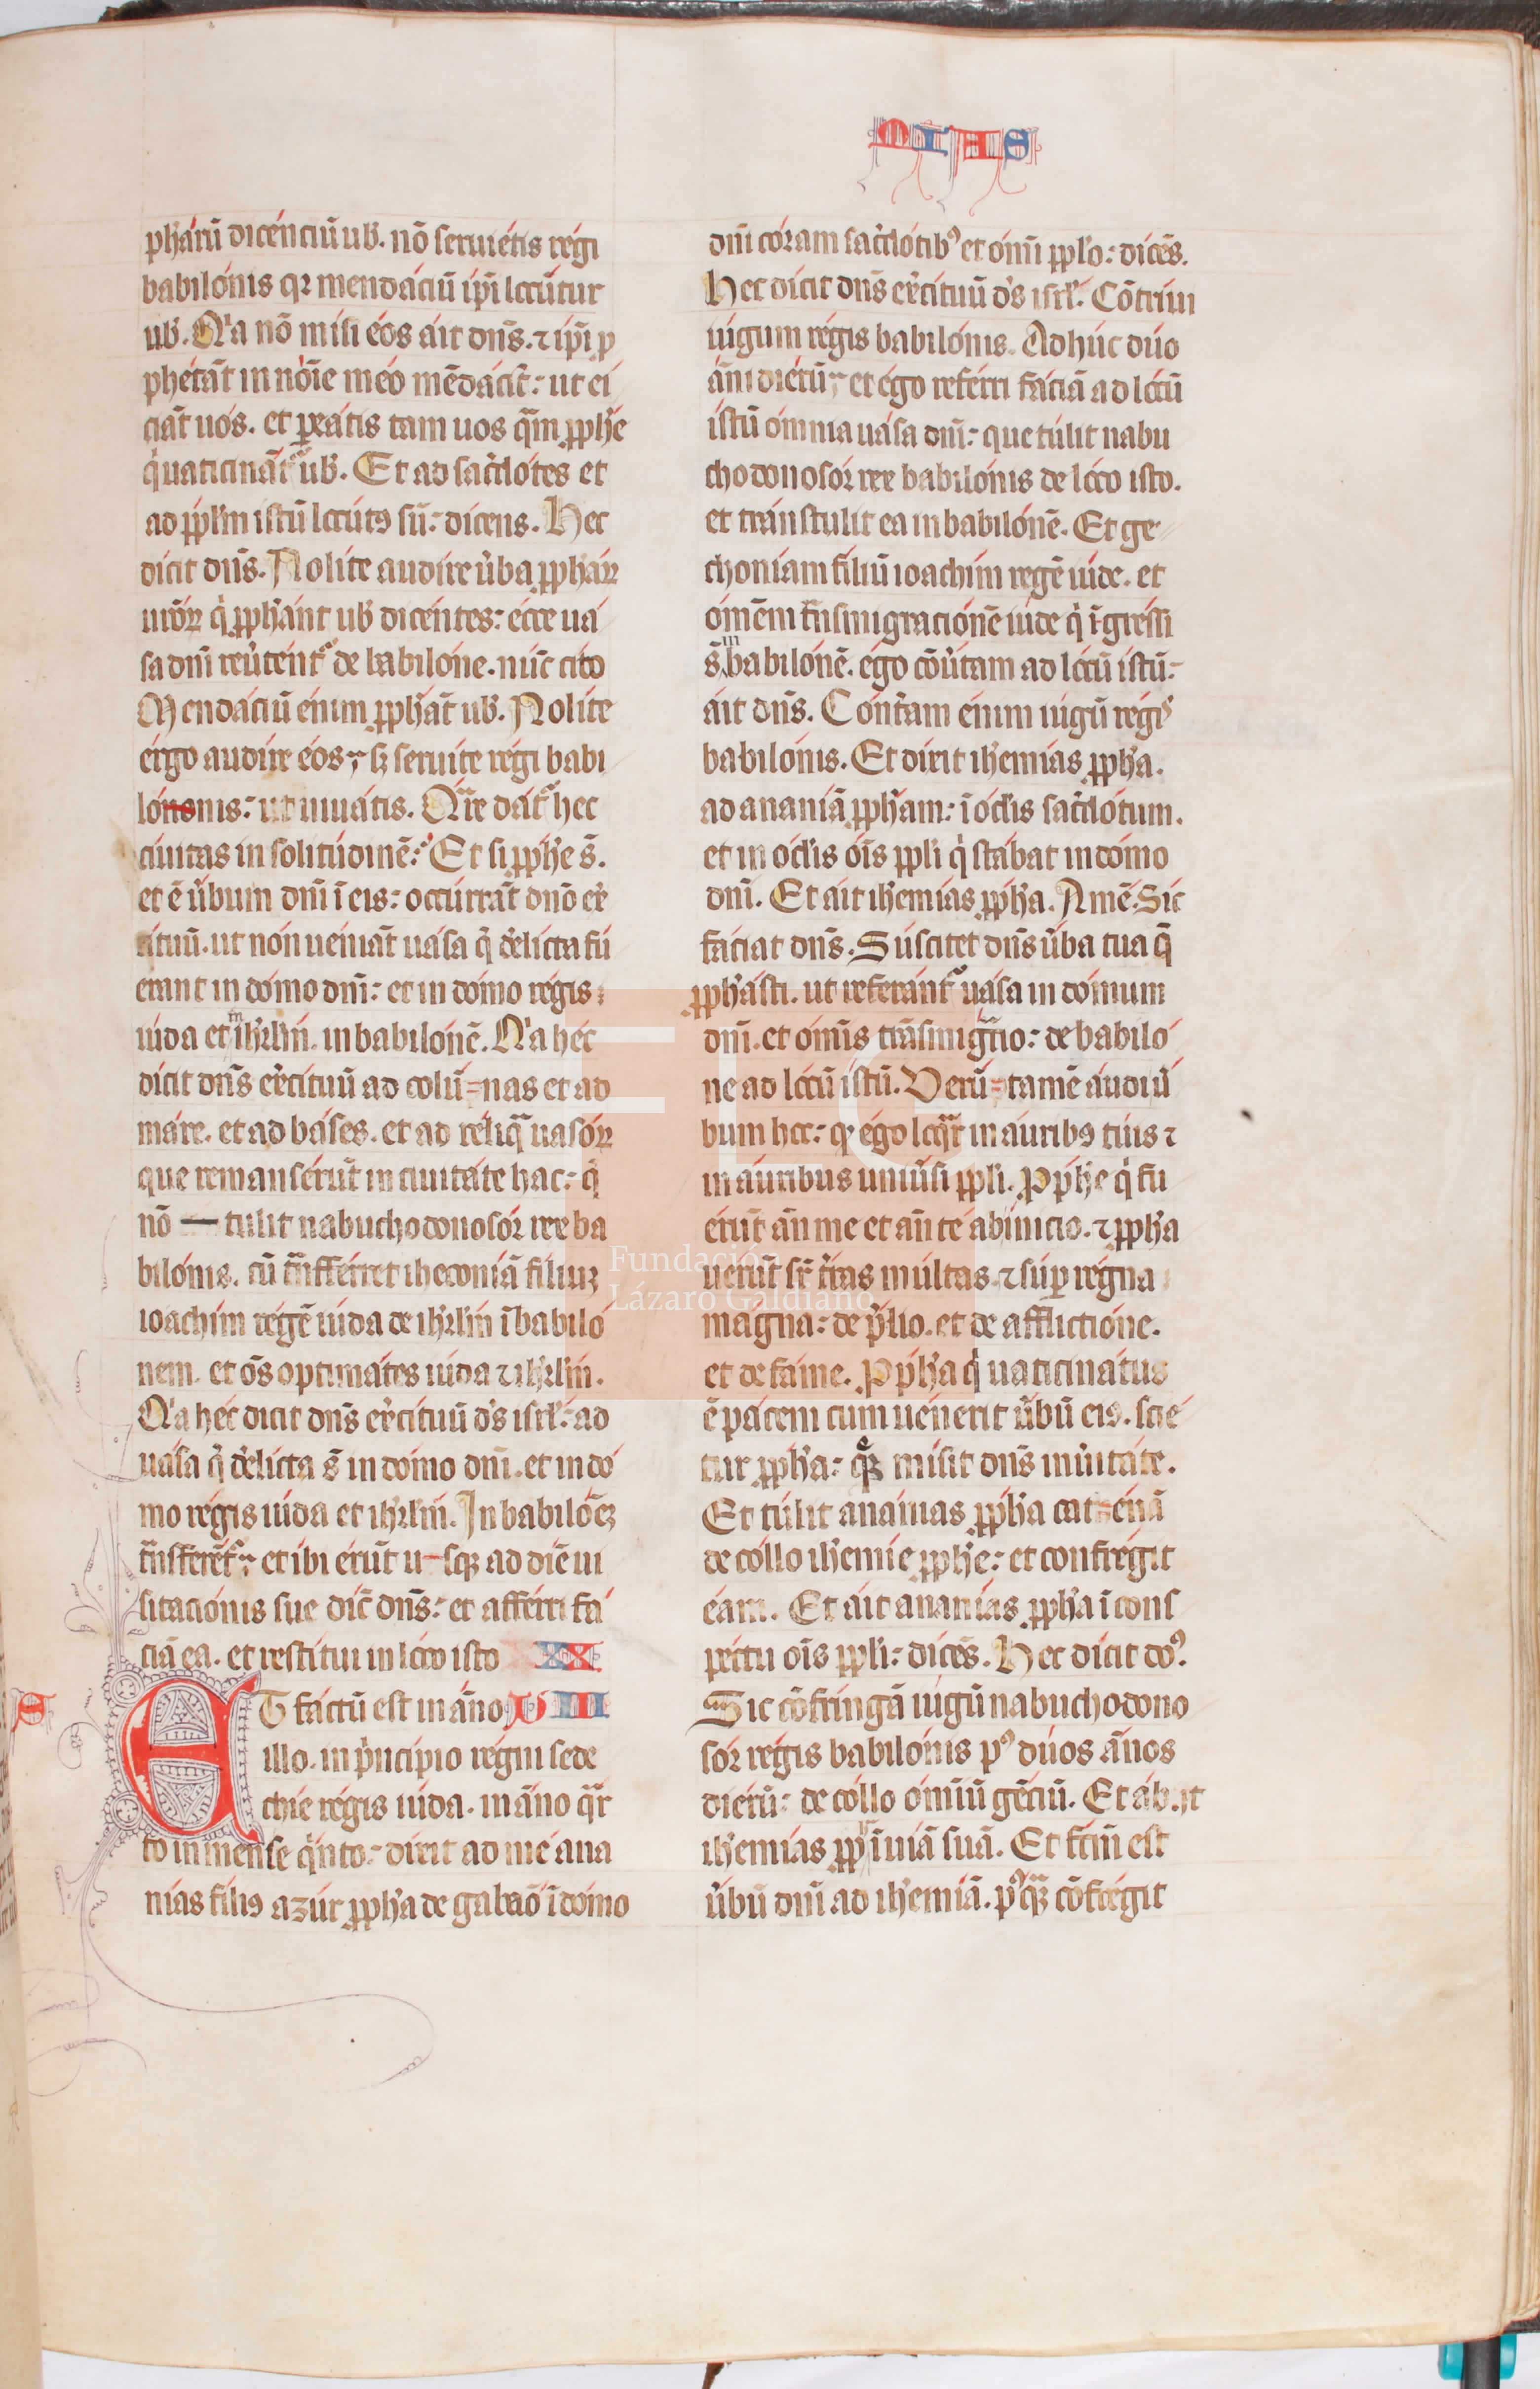 MIAS
pħarū dicenciū ub̄. nō seruietis regi
babilonis qꝛ mendaciū ip̄i lo̅c̅ūtur
ub̄. Q̄a nō misi eos ait dn̄s. ⁊ ip̄i p̱
phetāt in noīe meo mēdacit̄: ut ei
ciāt uos. et ꝑeatis tam uos q̄m ꝓpħe
q̇ uaticināt᷑ ub̄. Et ad sac̄dotes et
ad ꝓpl̄m istū locutꝯ sū: dicens. Hec
dicit dn̄s. Nolite audire u̇ba ꝓpħaꝝ
uroꝝ q̇ ꝓpħant ub̄ dicentes: ecce ua
sa dn̄i reu̇tent᷑ de babilone. nūc cito
Mendaciū enim ꝓpħāt ub̄. Nolite
ergo audire eos; sꝫ seruite regi babi
lononis: ut uiuatis. Q̄re dat᷑ hec
ciuitas in solitudinē: Et si ꝓpħe s̄.
et ē u̇bum dn̄i ī eis: occurrāt dn̄o ex̄
cituū. ut non ueniāt uasa q̇ d̄elicta fu
erant in domo dn̄i: et in domo regis
iuda et m̄ iħrl̄m. in babilonē. Q̄a hec
dicit dn̄s ex̄cituū ad colū-nas et ad
mare. et ad bases. et ad reliq̄ uasoꝝ
que remanserūt in ciuitate hac: q̇
nō — tulit nabuchodonosor rex ba
bilonis. cū t̄nsferret iheconiā filiuꝫ
ioachim regē iuda de iħrl̄m ī babilo
nem. et oēs optimates iuda ⁊ iħrl̄m.
Q̄a hec dicit dn̄s ex̄cituū d̄s isrl̄: ad
uasa q̇ d̄elicta s̄ in domo dn̄i. et in do
mo regis iuda et iħrl̄m. In babiloēꝫ
t̄nsferēt᷑; et ibi erūt u-sqꝫ ad diē ui
sitationis sue dic̄ dn̄s: et afferri fa
ciā ea. et restitui in loco isto XX
ET factū est in āno VIII
illo. in p̄ncipio regni sede
chie regis iuda. in āno q̄r
to in mense q̇nto: dixit ad me ana
nias filiꝯ azur ꝓpħa de gabaō ī domo
dn̄i coram sac̄dotibꝰ et om̄i ꝓpl̄o: dicēs.
Hec dicit dn̄s ex̄cituū d̄s isrl̄. Cōtriui
iugum regis babilonis. Adhuc duo
āni dierū; et ego referri faciā ad locū
istū omnia uasa dn̄i: que tulit nabu
chodonosor rex babilonis de loco isto.
et transtulit ea in babilonē. Et ge
choniam filiū ioachim regē iude. et
omēm t̄nsmigracionē iude q̇ īgressi
s̄ m babilonē. ego cōu̇tam ad locū istū:
ait dn̄s. Cont̄am enim iugū regis
babilonis. Et dixit iħemias ꝓpħa.
ad ananiā ꝓpħam: ī ocl̄is sac̄dotum.
et in ocl̄is oīs ꝓpli q̇ stabat in domo
dn̄i. Et ait iħemias ꝓpħa. Amē. Sic
faciat dn̄s. Suscitet dn̄s u̇ba tua q̄
ꝓpħasti. ut referant᷑ uasa in domum
dn̄i. et omīs trāsmigr̄io: de babilo
ne ad locū istū. Verū-tamē audi u̇
bum hoc: qᷓ ego loq̄r in auribꝯ tuis ⁊
in auribus uniu̇si ꝓpli. Ppħe q̇ fu
erūt an̄ me et an̄ te ab inicio. ⁊ ꝓpħa
uerūt sr̄ t̄ras multas. ⁊ suꝑ regna
magna: de p̄lio. et de afflictione.
et de fame. Ppħa q̇ uaticinatus
ē pacem cum uenerit u̇bū eiꝯ. scie
tur ꝓpħa: qᷓꝫ misit dn̄s in u̇itate.
Et tulit ananias ꝓpħa cat-enā
de collo iħemie ꝓpħe: et confregit
eam. Et ait ananias ꝓpħa ī cons
pectu oīs ꝓpli: dicēs. Hec dicit doꝰ.
Sic cōfringā iugū nabuchodono
sor regis babilonis pꝰ duos ānos
dierū: de collo omīū gēciū. Et abiit
iħemias ꝓpħ ī uiā suā. Et fcm̄ est
u̇bū dn̄i ad iħemiā. pꝰqᷓꝫ cōfregit
Fundación
Lázaro Galdiano